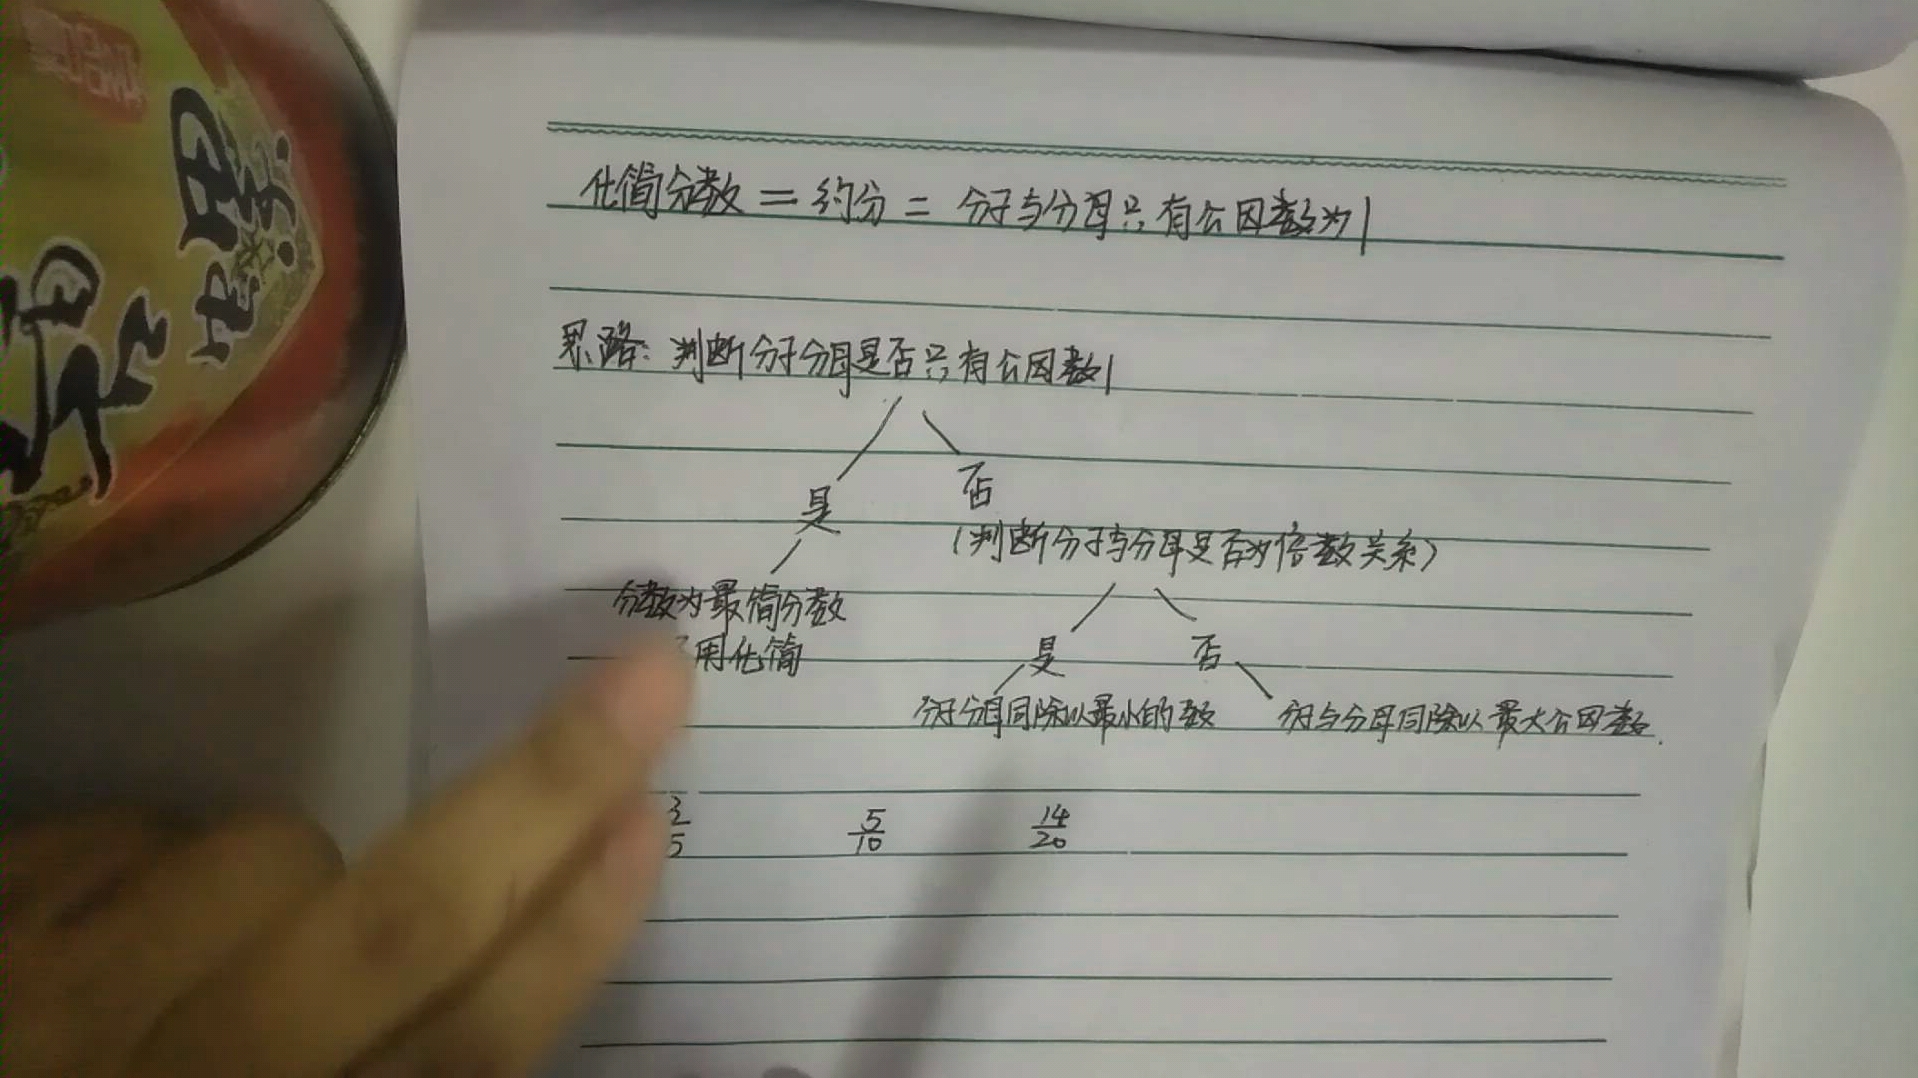 化简分数 = 约分 = 分子与分母只有公因数为1
思路: 判断分子分母是否只有公因数1
是 否
(判断分子与分母是否为倍数关系)
分数为最简分数
用化简
是 否
分子分母同除以最小的数 分子与分母同除以最大公因数.
5/10 14/20